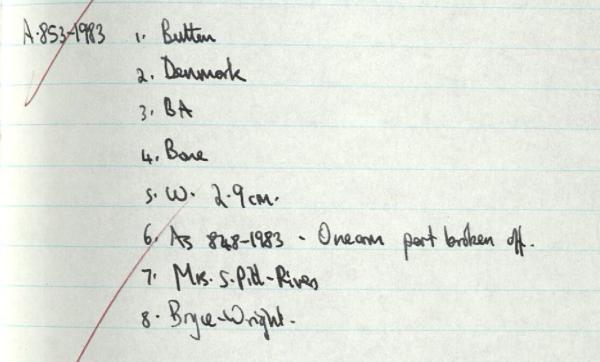 A.853-1983 1. Button
2. Denmark
3. BA
4. Bone
5. W. 2.9cm.
6. As 848-1983 - One arm part broken off.
7. Mrs. S. Pitt-Rivers
8. Bryce-Wright.